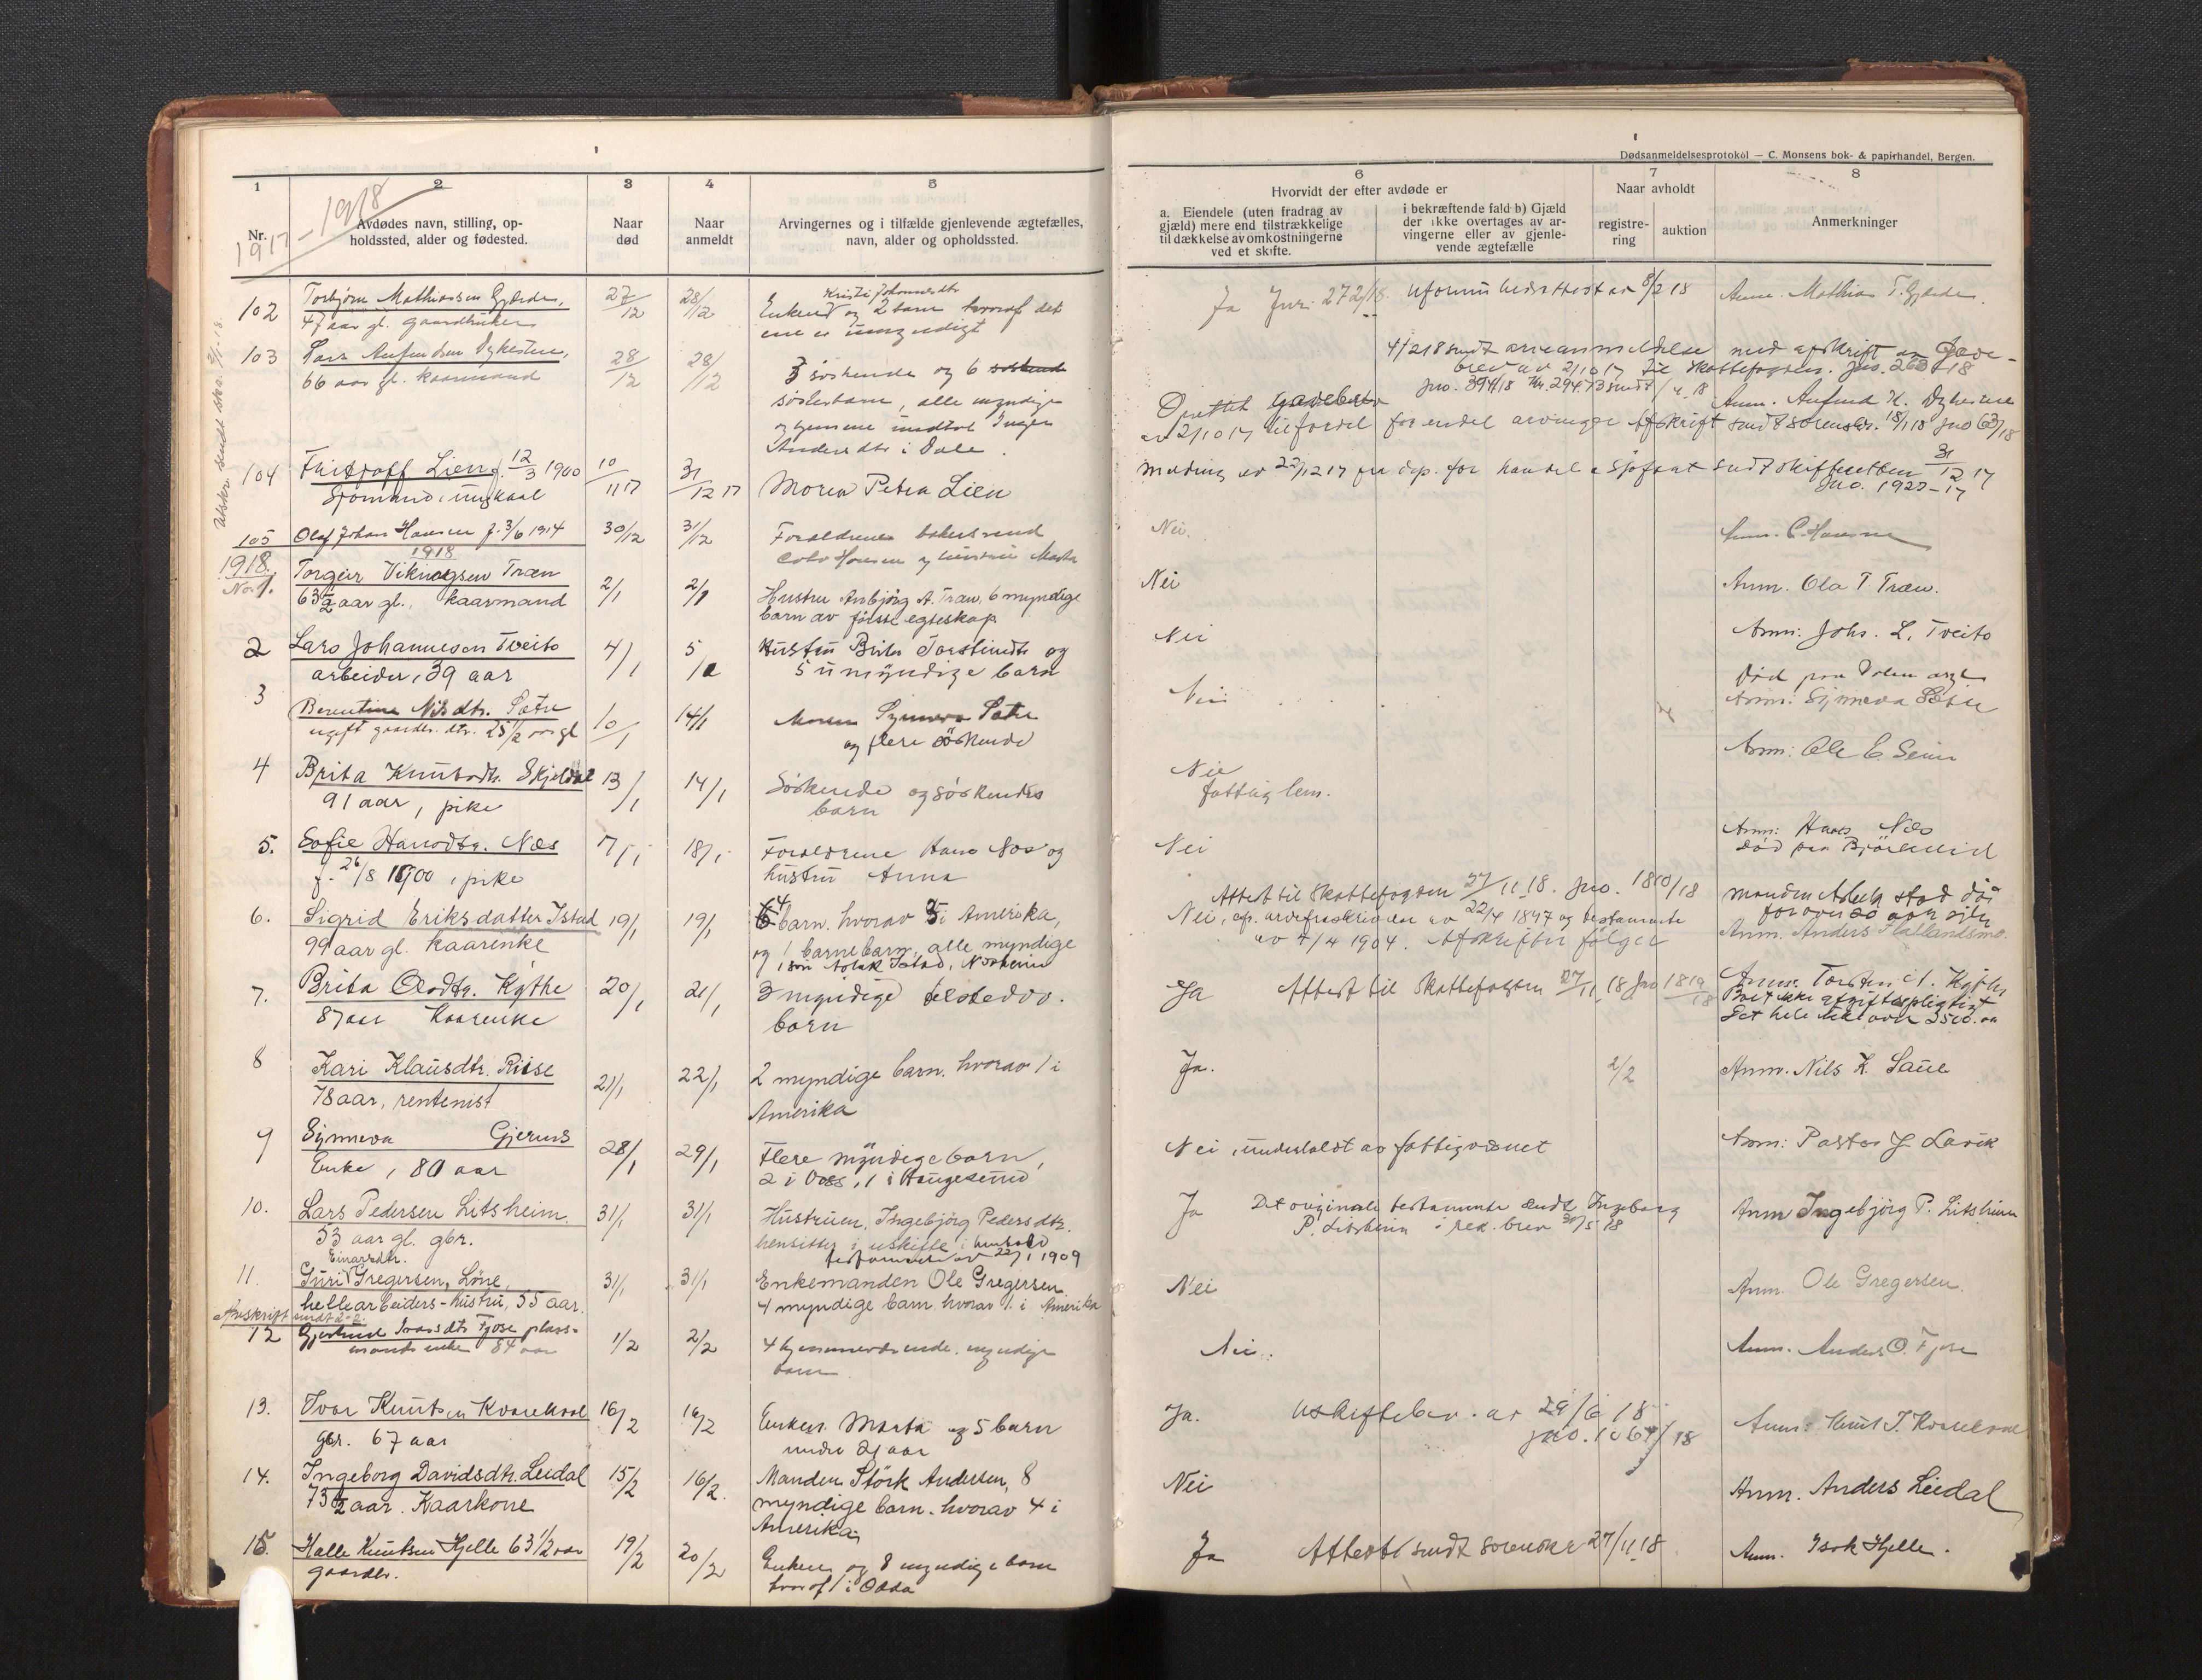 1917-1918
1
2
3
4
5
Nr.
Avdødes navn, stilling, op-
holdssted, alder og fødested.
Naar
død
Naar
anmeldt
Arvingernes og i tilfælde gjenlevende ægtefælles,
navn, alder og opholdssted.
102
Torbjørn Mathiassen Gjærdes,
47 aar gl. gaardbruker
27/12
28/12
Kristi Johannesdtr
Enken og 2 barn hvoraf det
ene er umyndigt
103
Lars Dykesteen,
66 aar gl. kaarmand
28/12
28/12
søskende og 6 søskend
søskenbarn, alle myndige
og hjemme undtat Inger
Andersdtr i Dale.
104
Fritjoff Lien f. 12/3 1900
Sjømand, ungkarl
10/11 17
31/12 17
Moren Petra Lien
105
Olaf Johan Hansen f. 3/6 1914
30/12
31/12
Forældrene
Hansen og hustru Marta
1918
1918.
No 1.
Torgeir Vikingsen Træn
63 1/2 aar gl., kaarmand
2/1
2/1
Hustru Anbjørg A. Træn, 6 myndige
barn av første egteskap
2
Lars Johannesen Tveito
arbeider, 39 aar
4/1
5
Hustru Brita Torsteinsdtr og
5 umyndige barn
3
Berentine Nilsdtr. Sætre
ugift gaardbr. dtr. 25 1/2 aar gl
10/1
14/1
Moren Synneva Sætre
og flere søskende
4
Brita Knutsdtr. Skjeldal
91 aar, pike
13/1
14/1
Søskende og søskendes
barn
5.
Sofie Hansdtr. Næs
f. 26/8 1900, pike
17/1
18/1
Forældrene Hans Næs og
hustru Anna
6.
Sigrid Eriksdatter Istad
99 aar gl. kaarenke
19/1
19/1
4 barn. hvorav i Amerika,
og 1 barnebarn, alle myndige
1 søn Aslak Istad,
7.
Brita Olsdtr. Kythe
87 aar Kaarenke
20/1
21/1
3 myndige tilstedev.
barn
8
Kari Klausdtr. Risse
78 aar, rentenist
21/1
22/1
2 myndige barn. hvorav 1 i
Amerika
9
Synneva Gjernes
Enke, 80 aar
28/1
29/1
Flere myndige barn,
2 i Voss, 1 i Haugesund
10.
Lars Pedersen Litsheim.
53 aar gl. gbr.
31/1
31/1
Hustruen, Ingebjørg Pedersdtr.
hensitter i uskifte i henhold
testamente av 22/1 1909
11.
Einarsdtr.
Guri Gregersen, Løne,
hellearbeiders-hustru, 55 aar.
31/1
31/1
Enkemanden Ole Gregersen
4 myndige barn hvorav 1 i Amerika
Avskrift sendt 2-2.
12
Gjertrud Ivarsdtr Fjose plass-
mands enke 84 aar
1/2
2/2
4 hjemmeværende myndige
barn
13.
Ivar Knutsen Kvarekval
gbr. 67 aar
16/2
16/2
Enken Marta og 5 barn
under 21 aar
14.
Ingeborg Davidsdtr. Leidal
73 1/2 aar. Kaarkone
15/2
16/2.
Manden Størk Andersen, 8
myndige barn. hvorav 4 i
Amerika
15.
Halle Knutsen Hjelle 63 1/2 aar
gaardbr.
19/2
20/2
Enken og 8 myndige barn
hvoraf 1 i Odda
Dødsanmeldelsesprotokol — C. Monsens bok- & papirhandel, Bergen.
6
7
8
Hvorvidt der efter avdøde er
Naar avholdt
a. Eiendele (uten fradrag av
gjæld) mere end tilstrækkelige
til dækkelse av omkostningerne
ved et skifte.
i bekræftende fald b) Gjæld
der ikke overtages av ar-
vingerne eller av gjenle-
vende ægtefælle
registre-
ring
auktion
Anmerkninger
Ja Jnr. 272/18. av 8/2 18
Anm. Mathias T. Gjærdes.
4/2 18 sendt arveanmeldelse med afskrift av Gave-
brev av 2/10 17 til Skattefogden. Jno. 263/18
Jno. 394/18
Oprettet Gavebrev
av 2/10 17 til fordel for endel arvinger Afskrift sendt sorenskr. 18/1 18 Jno 63/18
Melding av 22/12 17 fra dep. for handel & sjøfart sendt skifteretten 31/12 17
Jno. 1923-17
Nei.
Anm. C. Hansen
Nei
Anm. Ola T. Træn.
Nei
Anm: Johs. L. Tveito
Nei
Død paa
Anm: Synneva Sætre
Nei
fattiglem.
Anm: Ole E Seim
Nei
Anm: Hans Næs
død paa Bjørkelid
Attest til Skattefogden 27/11 18. Jno. 1810/18
Nei, cfr. arvefraskrivelse av 22/4 1897 og testamente
av 7/4 1904. Afskrifter følger
Manden Aslak Istad dø
for over 20 aar siden
Anm. Anders Flatlandsmo.
Ja
Attest til Skattefogden 27/11 18 Jno 1810/18
Anm. Torsten A. Kythe
Boet ikke afgiftspligtigt
Det hele ikke over 3500.00
Ja.
2/2
Anm. Nils K. Saue
Nei, underholdt av fattigvæsnet
Anm: Pastor J. Lavik
Ja
Det originale testamente sendt Ingeborg
P. Litsheim i rek. brev 30/5 18
Anm Ingebjørg P. Litsheim
Nei
Anm. Ole Gregersen.
Nei.
Anm. Anders O. Fjose
Ja.
Uskiftebev. av 29/6 18
Jno. 1064/18
Anm: Knut I. Kvarekval
Nei
Anm. Anders Leidal
Ja
Attest sendt sorenskr 27/11 18
Anm. Isak Hjelle.